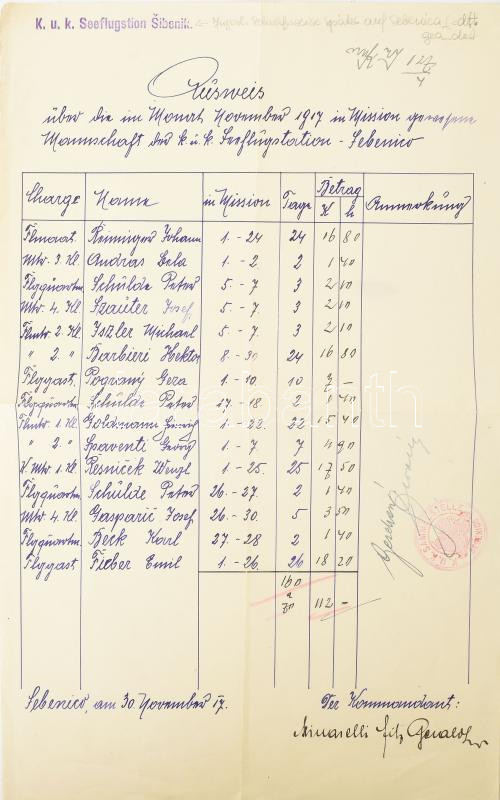 K. u. k. Seeflugstion Šibenik.
Ausweis
über die im Monat November 1917 in Mission gewesene
Mannschaft der k. u. k. Seeflugstation - Sebenico
Charge Name in Mission Tage Betrag K h Anmerkung
Flmaat. Renninger Johann 1. - 24 24 16 80
Mtr. 3. Kl. Andras Bela 1. - 2. 2 1 40
Flgquartm. Schülde Peter 5. - 7. 3 2 10
Mtr. 4. Kl. Szauter Josef 5. - 7. 3 2 10
Flmtr. 2. Kl. Iszler Michael 5. - 7. 3 2 10
" 2. " Barbieri Hektor 8. - 30. 24 16 80
Flggast. Pograny Geza 1. - 10. 10 7 -
Flgquartm. Schülde Peter 17. - 18. 2 1 40
Flmtr. 1. Kl. Goldmann 1. - 22. 22 15 40
" 2. " Spaventi Georg 1. - 7. 7 4 90
1. Kl. Resniček Wenzl 1. - 25. 25 17 50
Flgquartm. Schülde Peter 26. - 27. 2 1 40
Mtr. 4. Kl. Gasparič Josef 26. - 30. 5 3 50
Flgquartm. Beck Karl 27. - 28. 2 1 40
Flggast. Fieber Emil 1. - 26. 26 18 20
160
112 -
Sebenico, am 30. November 17.
Der Kommandant: